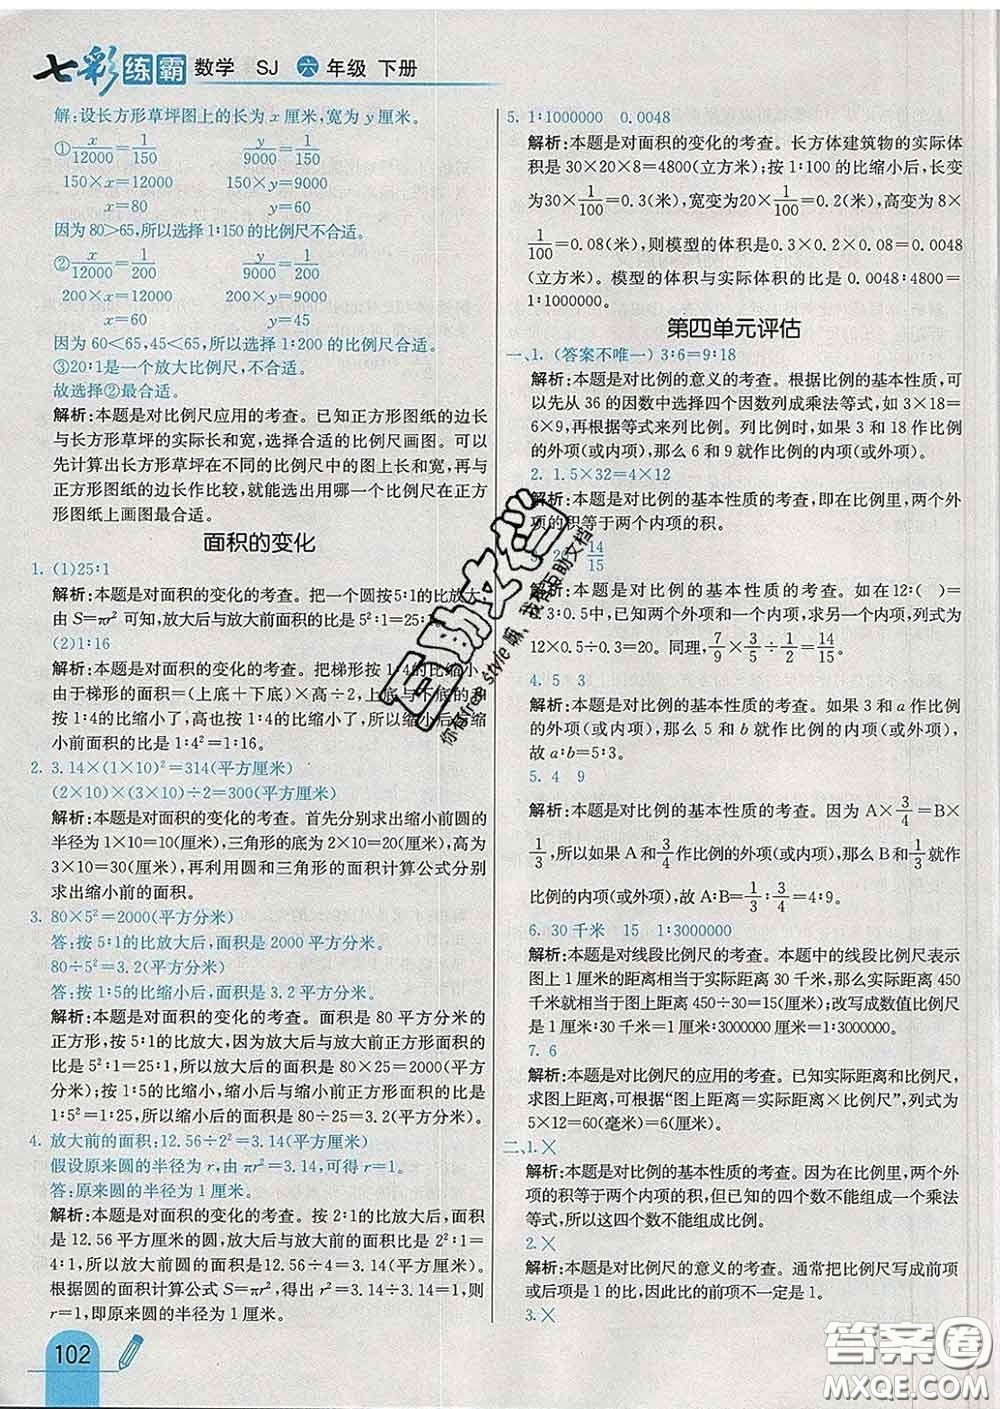 七彩练霸 数学 SJ 六年级 下册
解:设长方形草坪图上的长为x厘米,宽为y厘米。
①x/12000=1/150 y/9000=1/150
150×x=12000 150×y=9000
x=80 y=60
因为80>65,所以选择1∶150的比例尺不合适。
②x/12000=1/200 y/9000=1/200
200×x=12000 200×y=9000
x=60 y=45
因为60<65,45<65,所以选择1∶200的比例尺合适。
③20∶1是一个放大比例尺,不合适。
故选择②最合适。
解析:本题是对比例尺应用的考查。已知正方形图纸的边长
与长方形草坪的实际长和宽,选择合适的比例尺画图。可以
先计算出长方形草坪在不同的比例尺中的图上长和宽,再与
正方形图纸的边长作比较,就能选出用哪一个比例尺在正方
形图纸上画图最合适。
面积的变化
1. (1)25∶1
解析:本题是对面积的变化的考查。把一个圆按5∶1的比放大,
由S=πr²可知,放大后与放大前面积的比是5²∶1=25∶1。
(2)1∶16
解析:本题是对面积的变化的考查。把梯形按1∶4的比缩小,
由于梯形的面积=(上底+下底)×高÷2,上底、下底的和
按1∶4的比缩小了,高也按1∶4的比缩小了,所以缩小后与缩
小前面积的比是1∶4²=1∶16。
2. 3.14×(1×10)²=314(平方厘米)
(2×10)×(3×10)÷2=300(平方厘米)
解析:本题是对面积的变化的考查。首先分别求出缩小前圆的
半径为1×10=10(厘米),三角形的底为2×10=20(厘米),高为
3×10=30(厘米),再利用圆和三角形的面积计算公式分别
求出缩小前的面积。
3. 80×5²=2000(平方分米)
答:按5∶1的比放大后,面积是2000平方分米。
80÷5²=3.2(平方分米)
答:按1∶5的比缩小后,面积是3.2平方分米。
解析:本题是对面积的变化的考查。面积是80平方分米的
正方形,按5∶1的比放大,因为放大后与放大前正方形面积的
比是5²∶1=25∶1,所以放大后的面积是80×25=2000(平方
分米);按1∶5的比缩小,缩小后与缩小前正方形面积的比是
1∶5²=1∶25,所以缩小后的面积是80÷25=3.2(平方分米)。
4. 放大前的面积:12.56÷2²=3.14(平方厘米)
假设原来圆的半径为r,由πr²=3.14,可得r=1。
答:原来圆的半径为1厘米。
解析:本题是对面积的变化的考查。按2∶1的比放大后,面积
是12.56平方厘米的圆,放大后与放大前面积的比是2²∶1=
4∶1,所以放大前圆的面积是12.56÷4=3.14(平方厘米)。
根据圆的面积计算公式S=πr²,得出r²=3.14÷3.14=1,则
r=1,即原来圆的半径为1厘米。
102
5. 1∶1000000 0.0048
解析:本题是对面积的变化的考查。长方体建筑物的实际体
积是30×20×8=4800(立方米);按1∶100的比缩小后,长变
为30×1/100=0.3(米),宽变为20×1/100=0.2(米),高变为8×
1/100=0.08(米),则模型的体积是0.3×0.2×0.08=0.0048
(立方米)。模型的体积与实际体积的比是0.0048∶4800=
1∶1000000。
第四单元评估
一、1. (答案不唯一)3∶6=9∶18
解析:本题是对比例的意义的考查。根据比例的基本性质,可
以先从36的因数中选择四个因数列成乘法等式,如3×18=
6×9,再根据等式来列比例。列比例时,如果3和18作比例
的外项(或内项),那么6和9就作比例的内项(或外项)。
2. 1.5×32=4×12
解析:本题是对比例的基本性质的考查,即在比例里,两个外
项的积等于两个内项的积。
3. 20 14/15
解析:本题是对比例的基本性质的考查。如在12∶( )=
0.3∶0.5中,已知两个外项和一个内项,求另一个内项,列式为
12×0.5÷0.3=20。同理,7/9×3/5÷1/2=14/15。
4. 5 3
解析:本题是对比例的基本性质的考查。如果3和a作比例
的外项(或内项),那么5和b就作比例的内项(或外项),
故a∶b=5∶3。
5. 4 9
解析:本题是对比例的基本性质的考查。因为A×3/4=B×
1/3,所以如果A和3/4作比例的外项(或内项),那么B和1/3就作
比例的内项(或外项)。故A∶B=1/3∶3/4=4∶9。
6. 30千米 15 1∶3000000
解析:本题是对线段比例尺的考查。本题中的线段比例尺表示
图上1厘米的距离相当于实际距离30千米,那么实际距离450
千米就相当于图上距离450÷30=15(厘米);改写成数值比例尺
是1厘米∶30千米=1厘米∶3000000厘米=1∶3000000。
7. 6
解析:本题是对比例尺的应用的考查。已知实际距离和比例尺,
求图上距离,可根据“图上距离=实际距离×比例尺”,列式为
5×12=60(毫米)=6(厘米)。
二、1. ×
解析:本题是对比例的基本性质的考查。因为在比例里,两个外
项的积等于两个内项的积,但已知的四个数不能组成一个乘法
等式,所以这四个数不能组成比例。
2. ×
解析:本题是对比例尺的意义的考查。通常把比例尺写成前项
或后项是1的比,因此比的前项不一定是1。
3. ×
百助文档
你有free style嘛,我有互助文档
答案圈
MXQE.COM